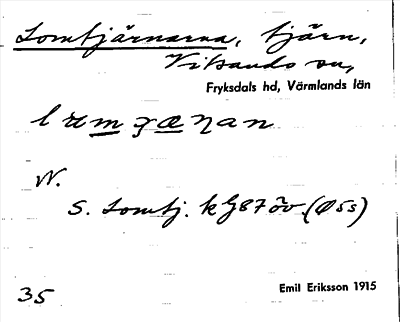 Lomtjärnarna, tjärn,
Vitsands sn,
Fryksdals hd, Värmlands län
N.
S. Lomtj. kg 87 öv. (Ø 5s)
35
Emil Eriksson 1915